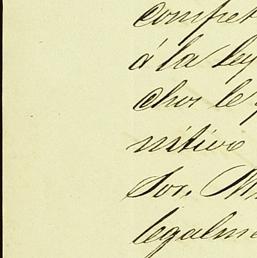 compet
á la ley
chos le
nitivo
Sor. M
legalme